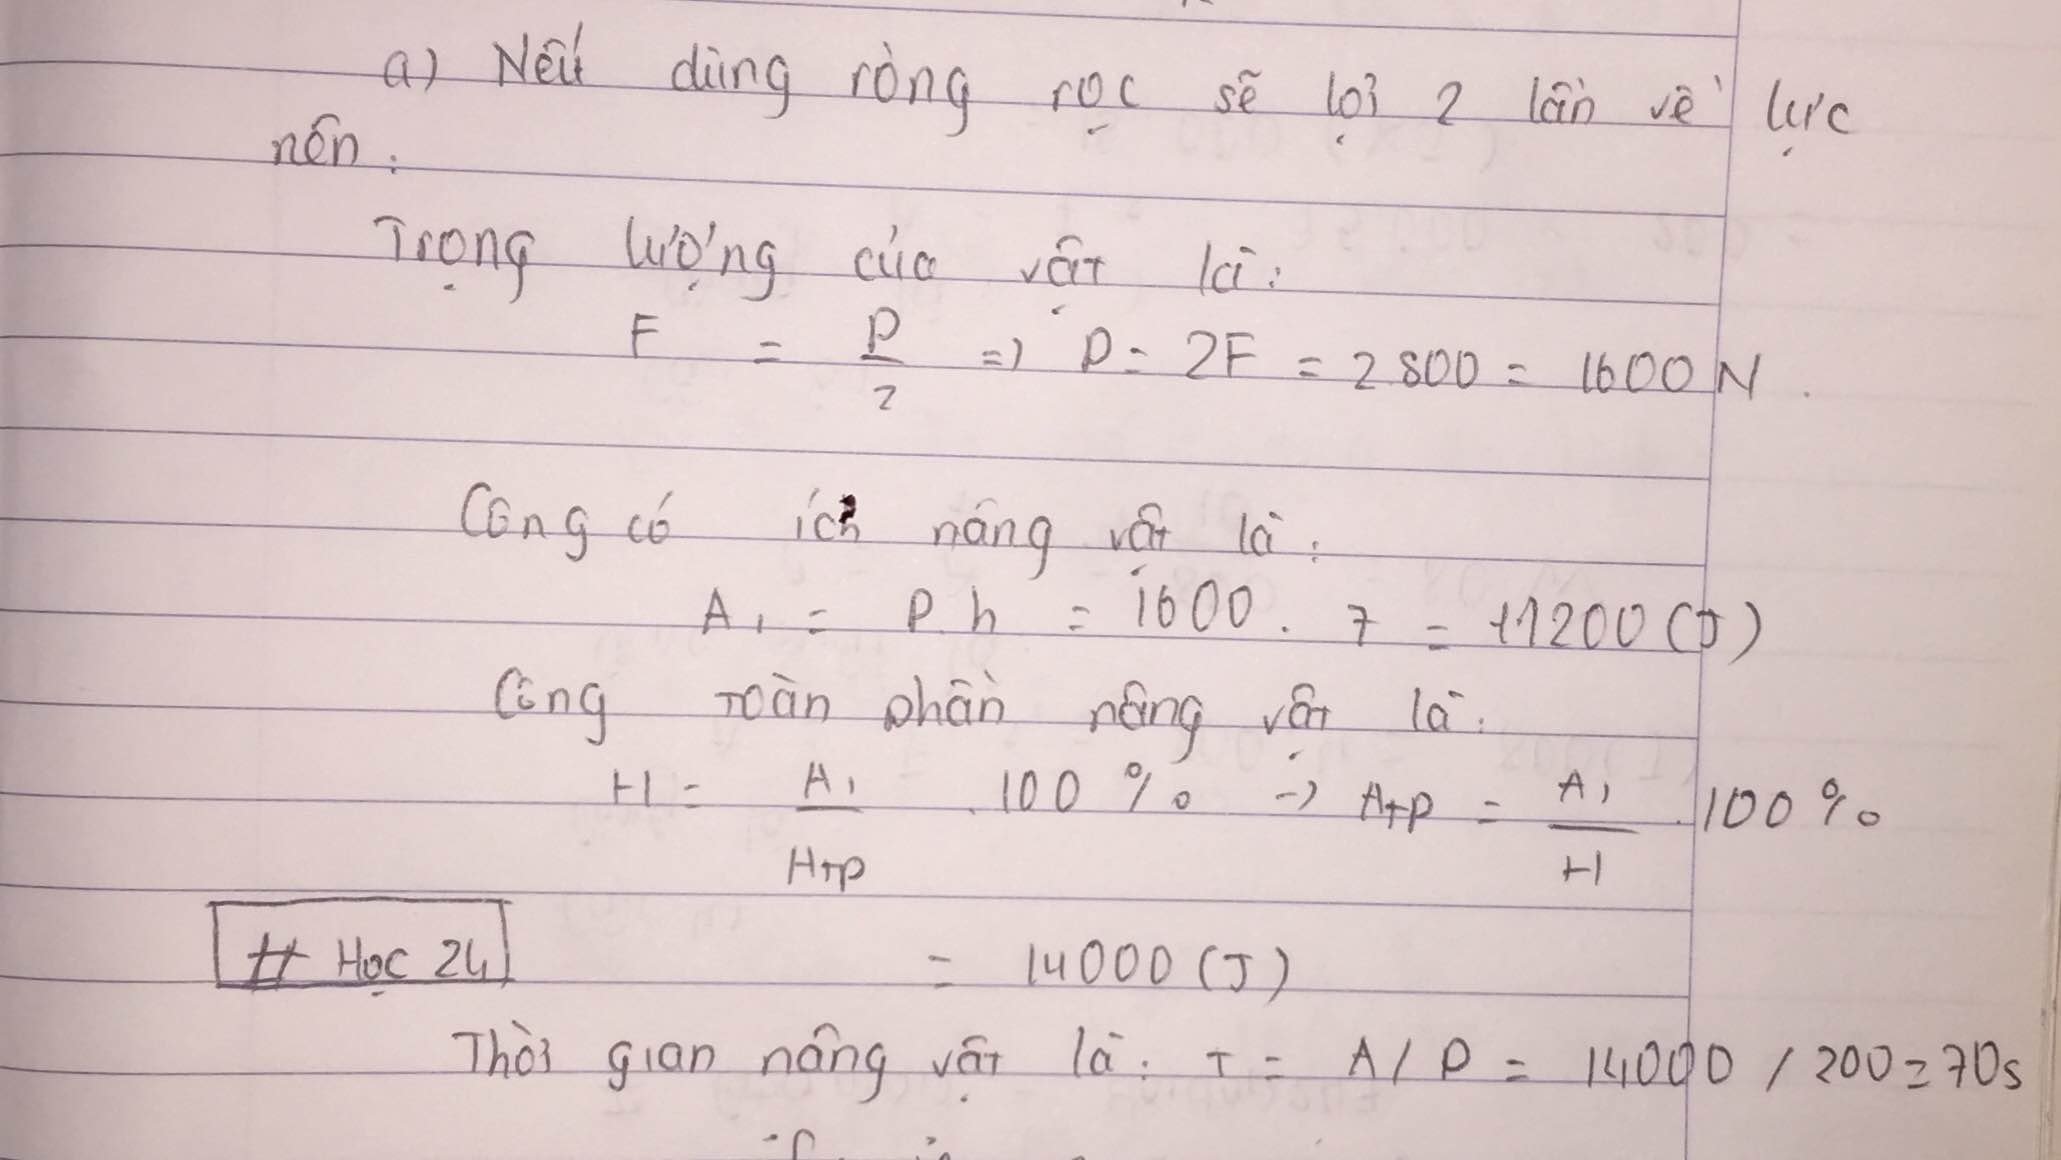 a) Nếu dùng ròng rọc sẽ lợi 2 lần về lực
nên:
Trọng lượng của vật là:
F = P/2 => P = 2F = 2 800 = 1600 N.
Công có ích nâng vật là:
A1 = P.h = 1600 . 7 = 11200 (J)
Công toàn phần nâng vật là:
H = A1/Atp . 100 % -> Atp = A1/H . 100 %
# Học 24 = 14000 (J)
Thời gian nâng vật là: T = A / P = 14000 / 200 = 70s